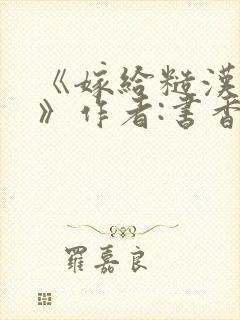 《嫁给糙漢
》作者:書香
羅嘉良